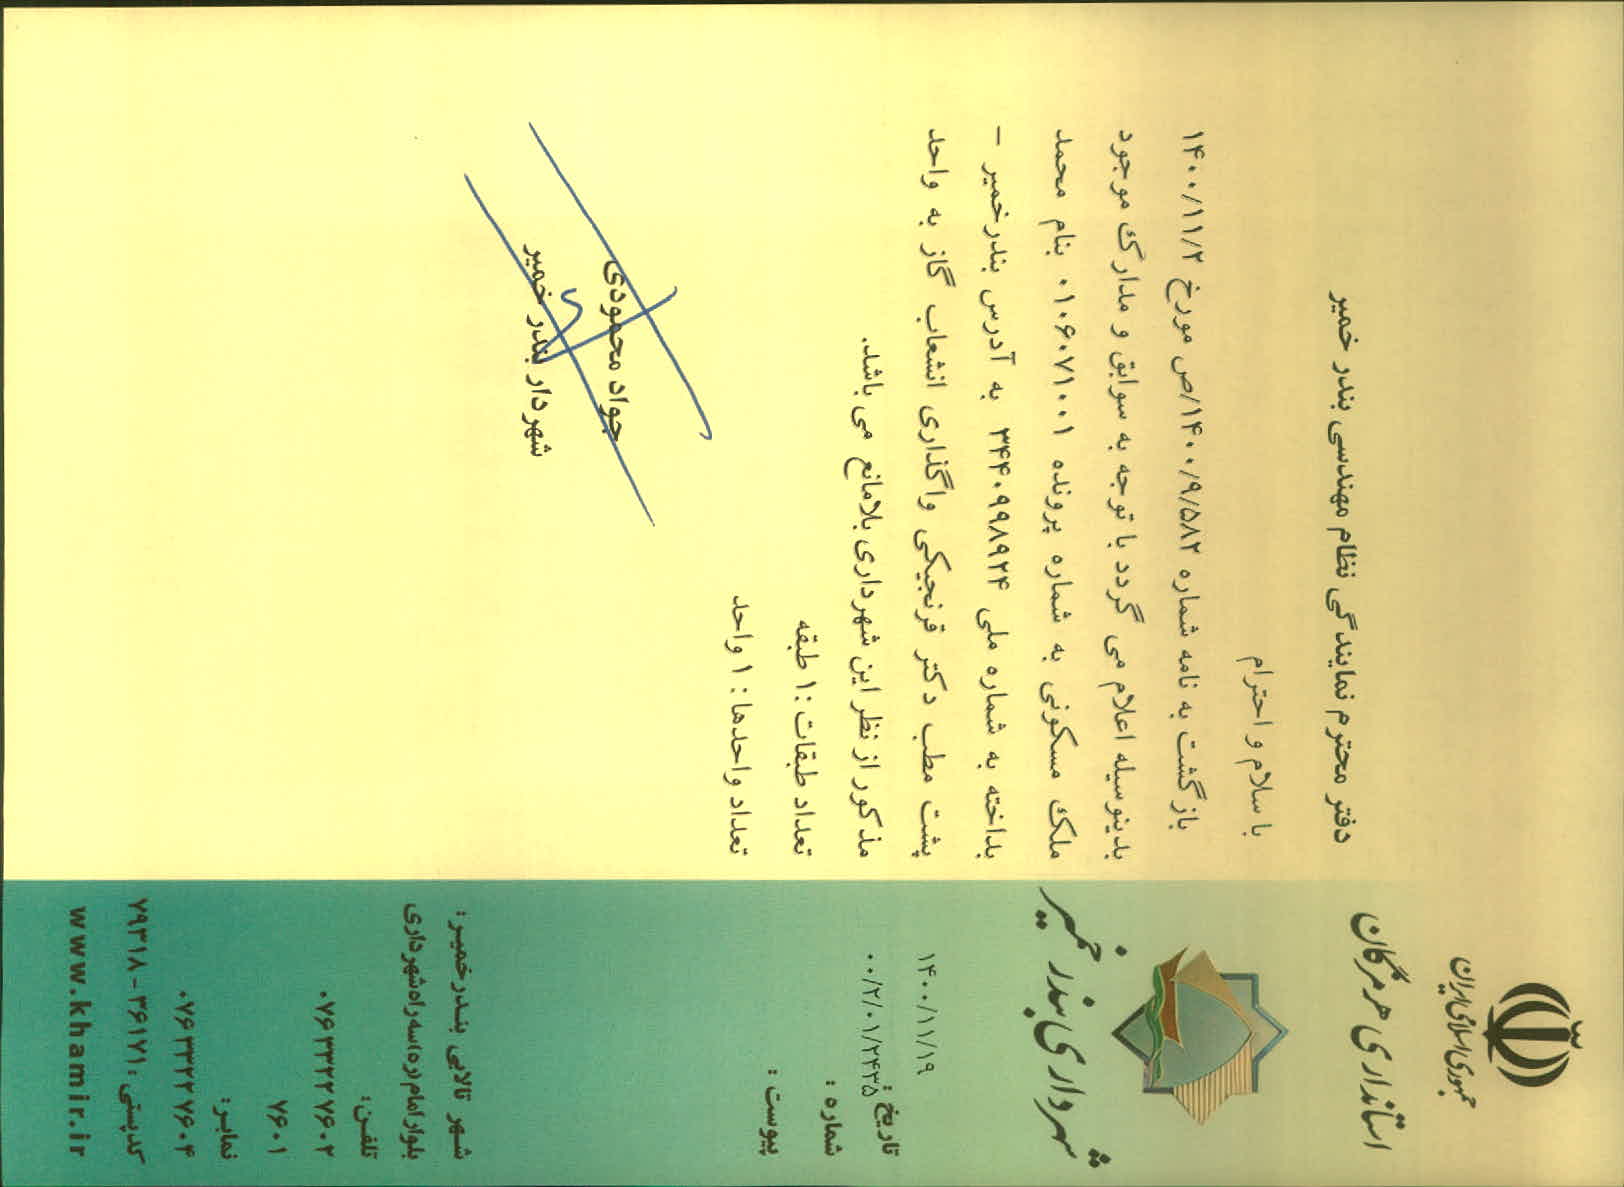 جمهوری اسلامی ایران
استانداری هرمزگان
شهرداری بندر خمیر
۱۴۰۰/۱۱/۱۹
تاریخ :
۰۰/۲/۰۱/۲۴۳۵
شماره :
پیوست :
دفتر محترم نمایندگی نظام مهندسی بندر خمیر
با سلام و احترام
بازگشت به نامه شماره ۱۴۰۰/۹/۵۸۲/ص مورخ ۱۴۰۰/۱۱/۲
بدینوسیله اعلام می گردد با توجه به سوابق و مدارک موجود
ملک مسکونی به شماره پرونده ۰۱۰۶۰۷۱۰۰۱ بنام محمد
بداخته به شماره ملی ۳۴۴۰۹۹۸۹۲۴ به آدرس بندرخمیر –
پشت مطب دکتر قرنجیکی واگذاری انشعاب گاز به واحد
مذکور از نظر این شهرداری بلامانع می باشد.
تعداد طبقات :۱ طبقه
تعداد واحدها : ۱ واحد
جواد محمودی
شهردار بندر خمیر
شهر تالابی بندرخمیر:
بلوار امام (ره) سه راه شهرداری
تلفن:
۰۷۶ ۳۳۲۲ ۷۶۰۲
۷۶۰۱
نمابر:
۰۷۶ ۳۳۲۲ ۷۶۰۴
کدپستی : ۳۶۱۷۱ - ۷۹۳۱۸
www.khamir.ir